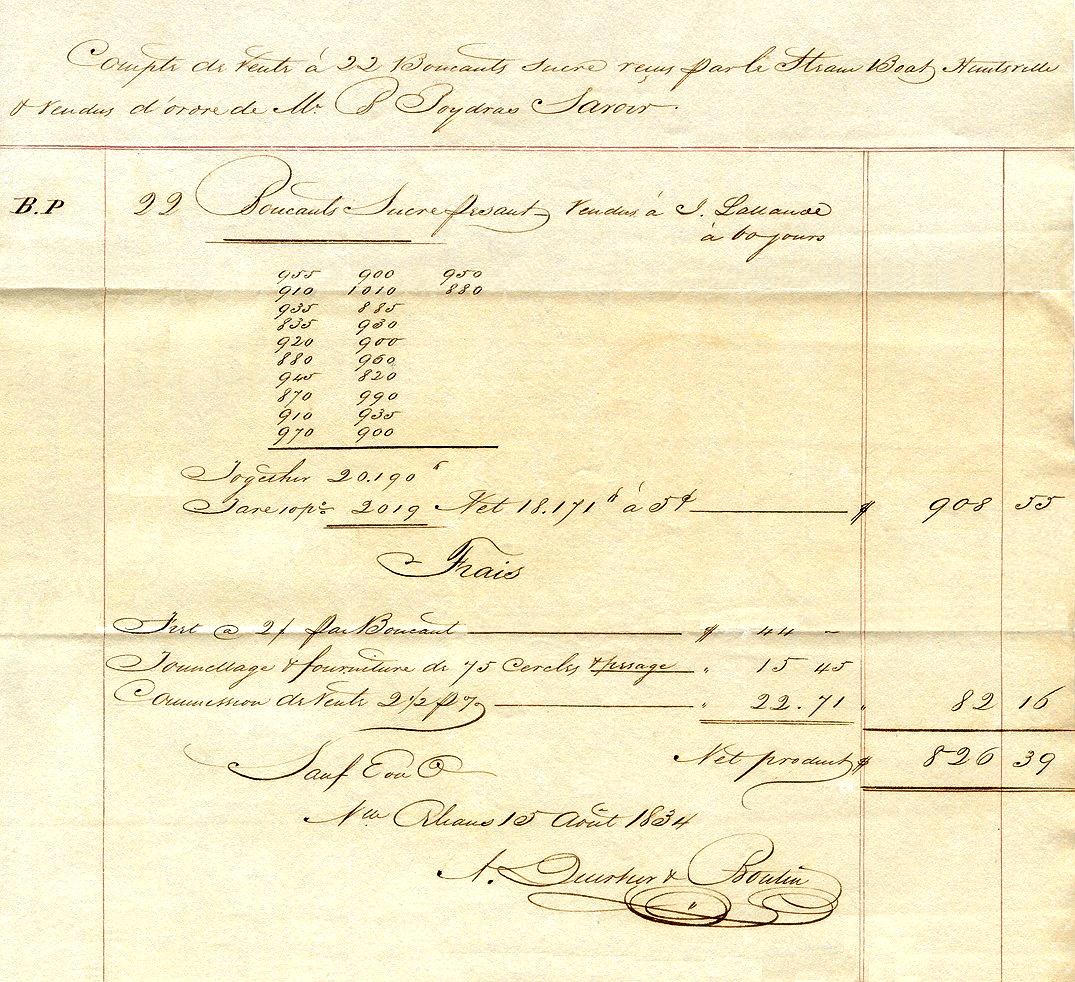 Compte de Vente à 22 Boucauts Sucre reçus par le Steam Boat Huntsville
& Vendus d'ordre de Mr. B Poydras Savoir.
B.P 22 Boucauts Sucre pesant Vendus à J. Lallande
à 60 jours
955 900 950
910 1010 880
935 885
835 930
920 900
880 960
945 820
870 990
910 935
970 900
Together 20.190 ℔
Tare 10 p% 2019 Net 18.171 ℔ à 5¢ $ 908 55
Frais
Fret @ 2/ par Boucaut $ 44 -
Tonnellage & fourniture de 75 Cercles & pesage " 15 45
Commission de Vente 2 1/2 p% " 22.71 " 82 16
Sauf E ou O Net product $ 826 39
Nw Orleans 15 Août 1834
A. & Boutin